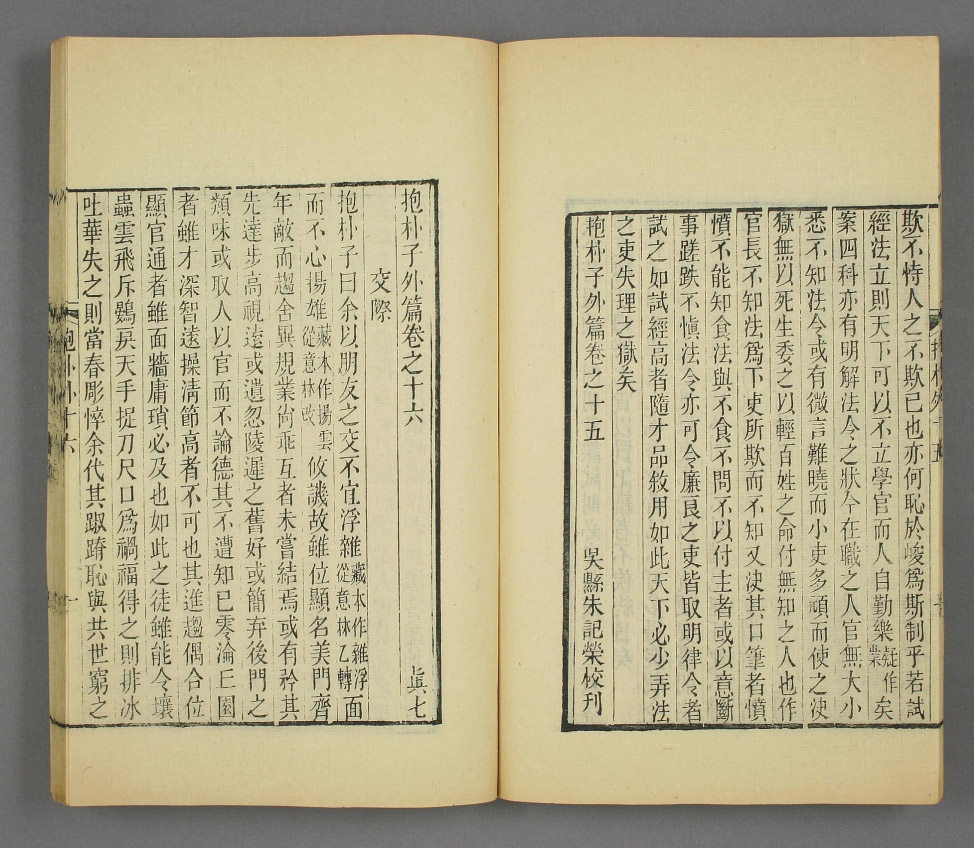 欺不恃人之不欺已也亦何恥於峻爲斯制乎若試
經法立則天下可以不立學官而人自勤樂疑作業矣
案四科亦有明解法令之狀今在職之人官無大小
悉不知法令或有微言難曉而小吏多頑而使之決
獄無以死生委之以輕百姓之命付無知之人也作
官長不知法爲下吏所欺而不知又決其口筆者憒
憒不能知食法與不食不問不以付主者或以意斷
事蹉跌不愼法令亦可令廉良之吏皆取明律令者
試之如試經高者隨才品敘用如此天下必少弄法
之吏失理之獄矣
抱朴子外篇卷之十五　吳縣朱記榮校刊
抱朴子外篇卷之十六　眞七
交際
抱朴子曰余以朋友之交不宜浮雜藏本作雜浮從意林乙轉面
而不心揚雄藏本作揚雲從意林改攸譏故雖位顯名美門齊
年敵而趨舍異規業尚乖互者未嘗結焉或有矜其
先達步高視遠或遺忽陵遲之舊好或簡弃後門之
類味或取人以官而不論德其不遭知已零淪丘園
者雖才深智遠操淸節高者不可也其進趨偶合位
顯官通者雖面牆庸瑣必及也如此之徒雖能令壤
蟲雲飛斥鷃戾天手捉刀尺口爲禍福得之則排冰
吐華失之則當春彫悴余代其踧踖恥與共世窮之